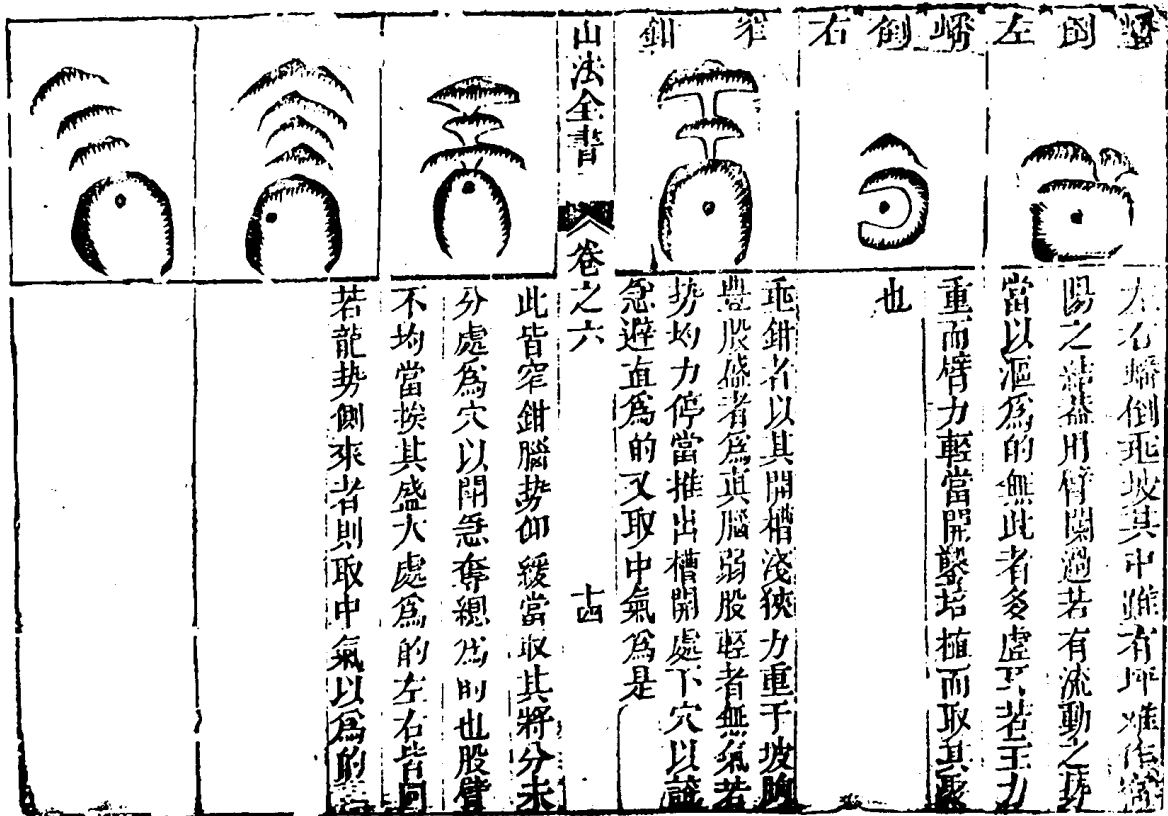 蟠倒左
左右蟠倒乖坡其中雖有坪難作
陽之結蓋用臂闌過若有流動之勢
當以漚爲的無此者多虛耳若主力
蟠倒右
重而臂力輕當開鑿培植而取其聚
也
窄鉗
乖鉗者以其開槽淺狹力重于坡胸
豐股盛者爲真腦弱股輕者無氣若
勢均力停當推出槽開處下穴以
急避直爲的又取中氣爲是
山法全書
卷之六
十四
此皆窄鉗腦勢仰緩當取其將分未
分處爲穴以開急奪總爲的也股臂
不均當挨其盛大處爲的左右皆同
若龍勢側來者則取中氣以爲的